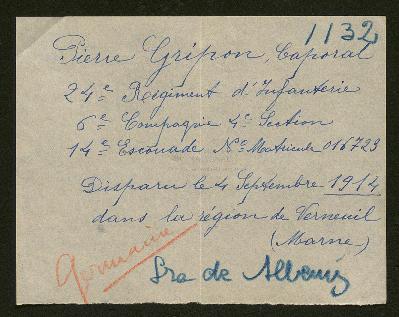 1132
Pierre Gripon, Caporal
24e Régiment d'Infanterie
6e Compagnie 4e Section
14e Escouade No Matricule 016723
Disparu le 4 Septembre 1914
dans la région de Verneuil
(Marne)
Germaine
Sra de